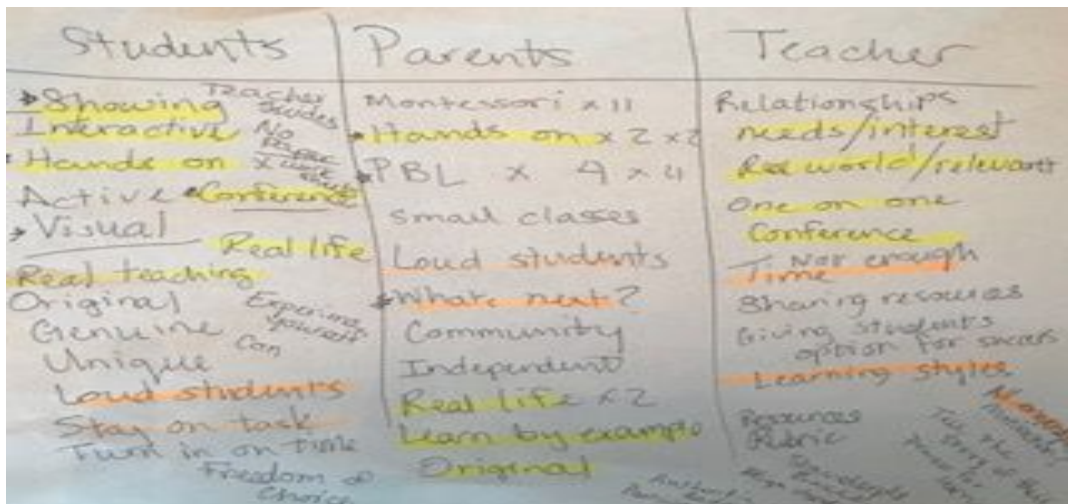 Students
Showing
Interactive
Hands on
Active Conference
Visual
Real life
Real teaching
Original
Genuine
Unique
Loud students
Stay on task
Turn in on time
Freedom of
Choice
Teacher
No
Can
Parents
Montessori x 11
Hands on x 2 x 2
PBL x 4 x 4
Small classes
Loud students
What's next?
Community
Independent
Real life x 2
Learn by example
Original
Teacher
Relationships
needs/interest
Real world/relevant
One on one
Conference
Not enough
Time
Sharing resources
Giving students
option for success
Learning styles
Resources
Rubric